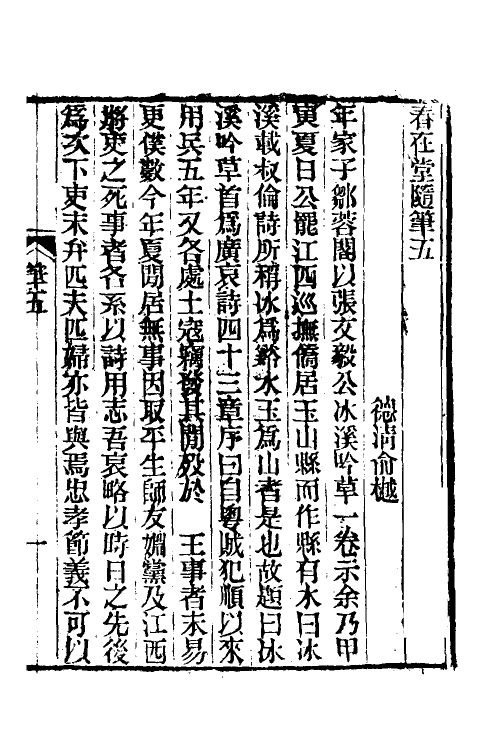 春在堂隨筆五
德淸俞樾
年家子鄒蓉閣以張文毅公冰溪吟草一卷示余乃甲
寅夏日公罷江西巡撫僑居玉山縣而作縣有水曰冰
溪載叔倫詩所稱冰爲黔水玉爲山者是也故題曰冰
溪吟草首爲廣哀詩四十三章序曰自粵賊犯順以來
用兵五年又各處土寇竊發其閒殁於　王事者未易
更僕數今年夏閒居無事因取平生師友婣黨及江西
將吏之死事者各系以詩用志吾哀略以時日之先後
爲次下吏末弁匹夫匹婦亦皆與焉忠孝節義不可以
筆五
一